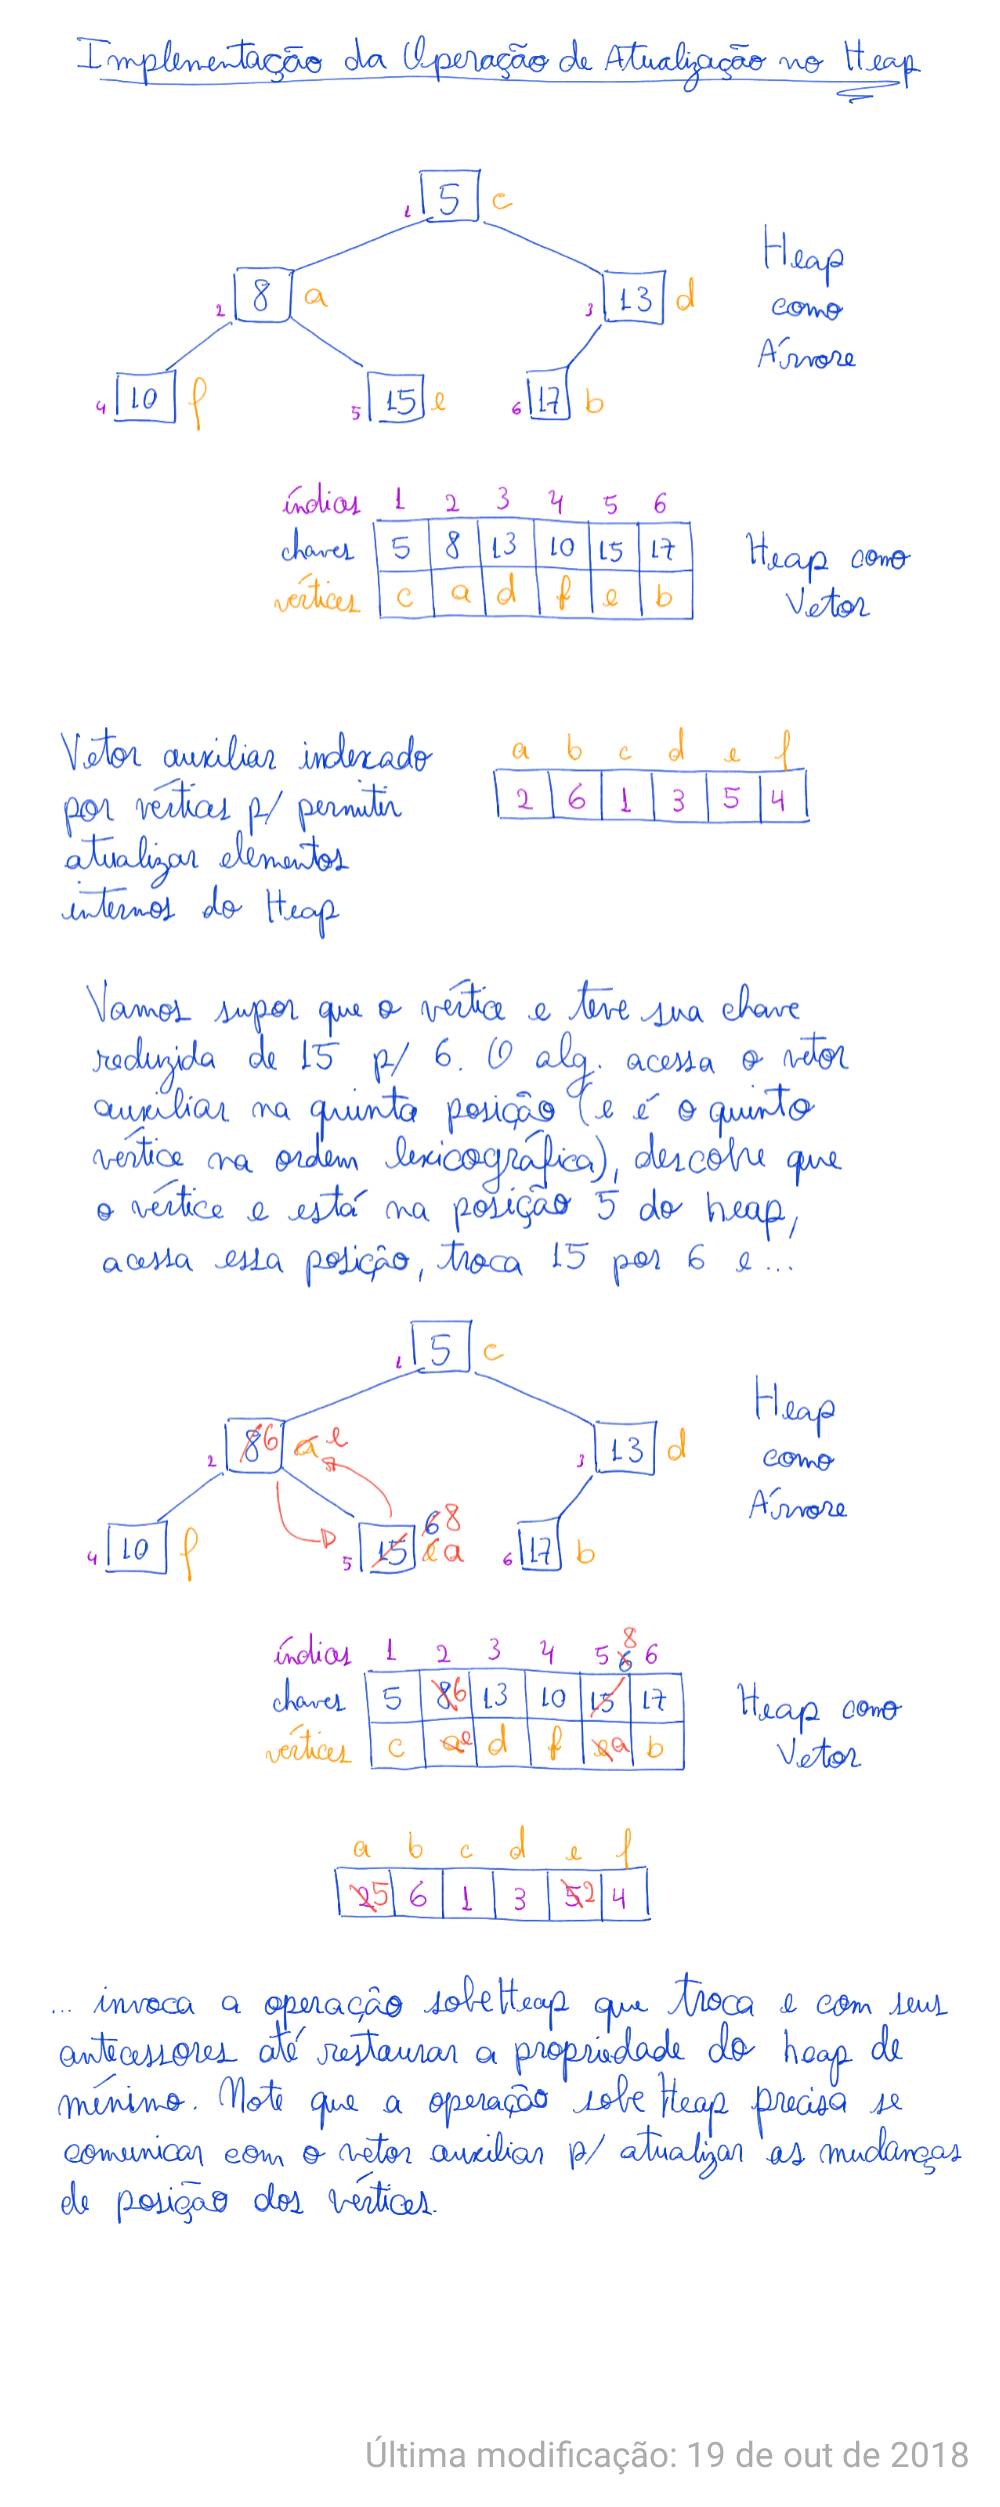 Implementação da Operação de Atualização no Heap
5 c
1
8 a
2
13 d
3
Heap
como
Árvore
10 f
4
15 e
5
17 b
6
índices 1 2 3 4 5 6
chaves 5 8 13 10 15 17
vértices c a d f e b
Heap como
Vetor
Vetor auxiliar indexado
por vértices p/ permitir
atualizar elementos
internos do Heap
a b c d e f
2 6 1 3 5 4
Vamos supor que o vértice e teve sua chave
reduzida de 15 p/ 6. O alg. acessa o vetor
auxiliar na quinta posição (e é o quinto
vértice na ordem lexicográfica), descobre que
o vértice e está na posição 5 do heap,
acessa essa posição, troca 15 por 6 e...
1 5 c
2 8 6 a e
3 13 d
Heap
como
Árvore
4 10 f
5 15 6 8 e a
6 17 b
índices 1 2 3 4 5 6
8
6
chaves 5 8 6 13 10 15 17
vértices c a e d f e a b
Heap como
Vetor
a b c d e f
2 5 6 1 3 5 2 4
... invoca a operação sobeHeap que troca e com seus
antecessores até restaurar a propriedade do heap de
mínimo. Note que a operação sobeHeap precisa se
comunicar com o vetor auxiliar p/ atualizar as mudanças
de posição dos vértices.
Última modificação: 19 de out de 2018